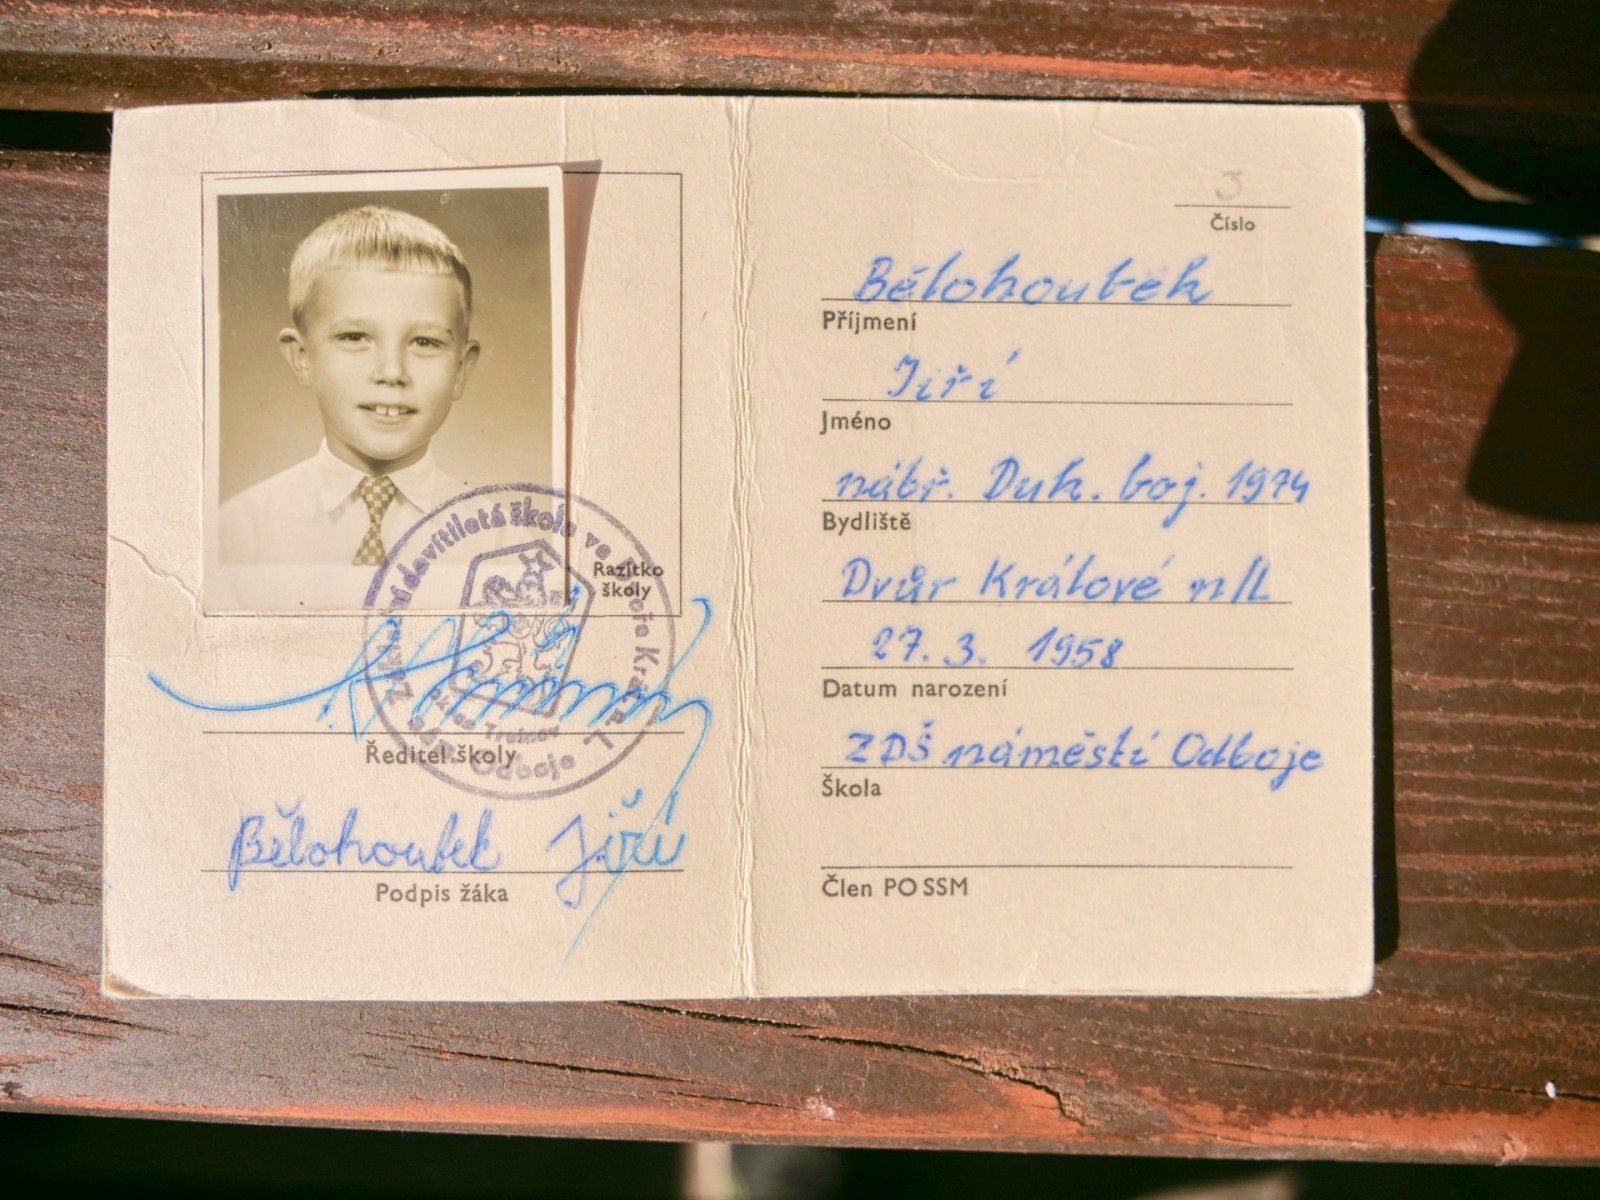 Razítko
školy
Ředitel školy
Bělohoubek Jiří
Podpis žáka
Základní devítiletá škola ve Dvoře Král. n. L.
okres Trutnov
nám. Odboje
3
Číslo
Bělohoubek
Příjmení
Jiří
Jméno
nábř. Duk. boj. 1974
Bydliště
Dvůr Králové n/L
27. 3. 1958
Datum narození
ZDŠ náměstí Odboje
Škola
Člen PO SSM